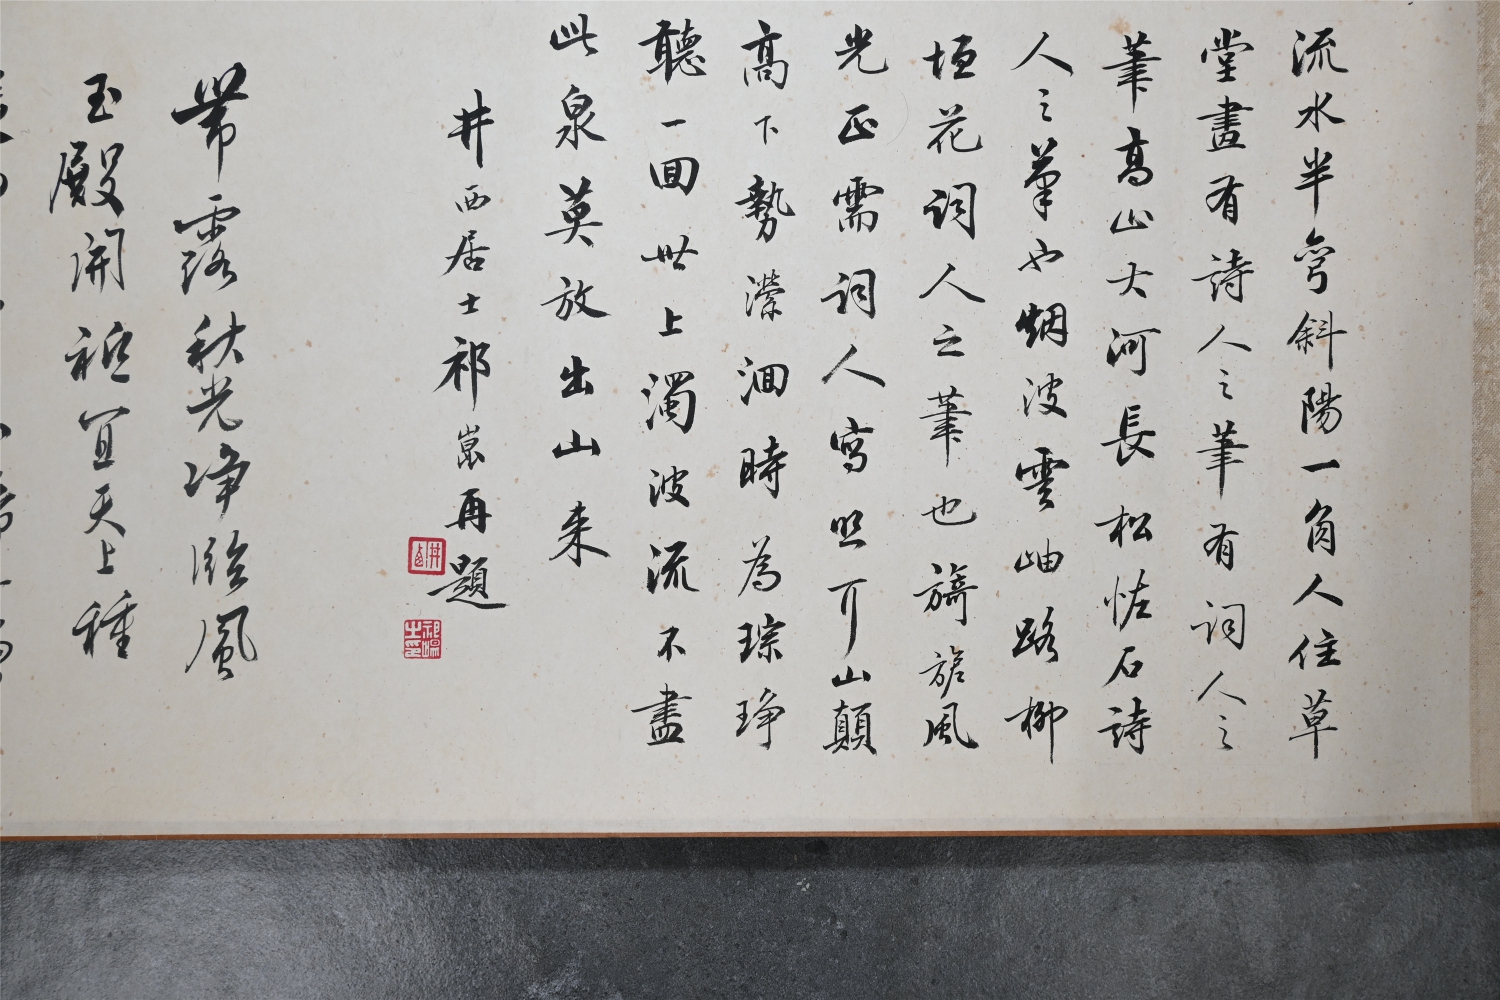 流水半彎斜陽一角人住草
堂畫有詩人之筆有詞人之
筆高山大河長松怪石詩
人之筆也烟波雲岫路柳
垣花詞人之筆也旖旎風
光正需詞人寫照可山顛
高下勢瀠洄時為琮琤
聽一回世上濁波流不盡
此泉莫放出山来
井西居士祁崑再題
帶露秋光净臨風
玉殿開祗宜天上種